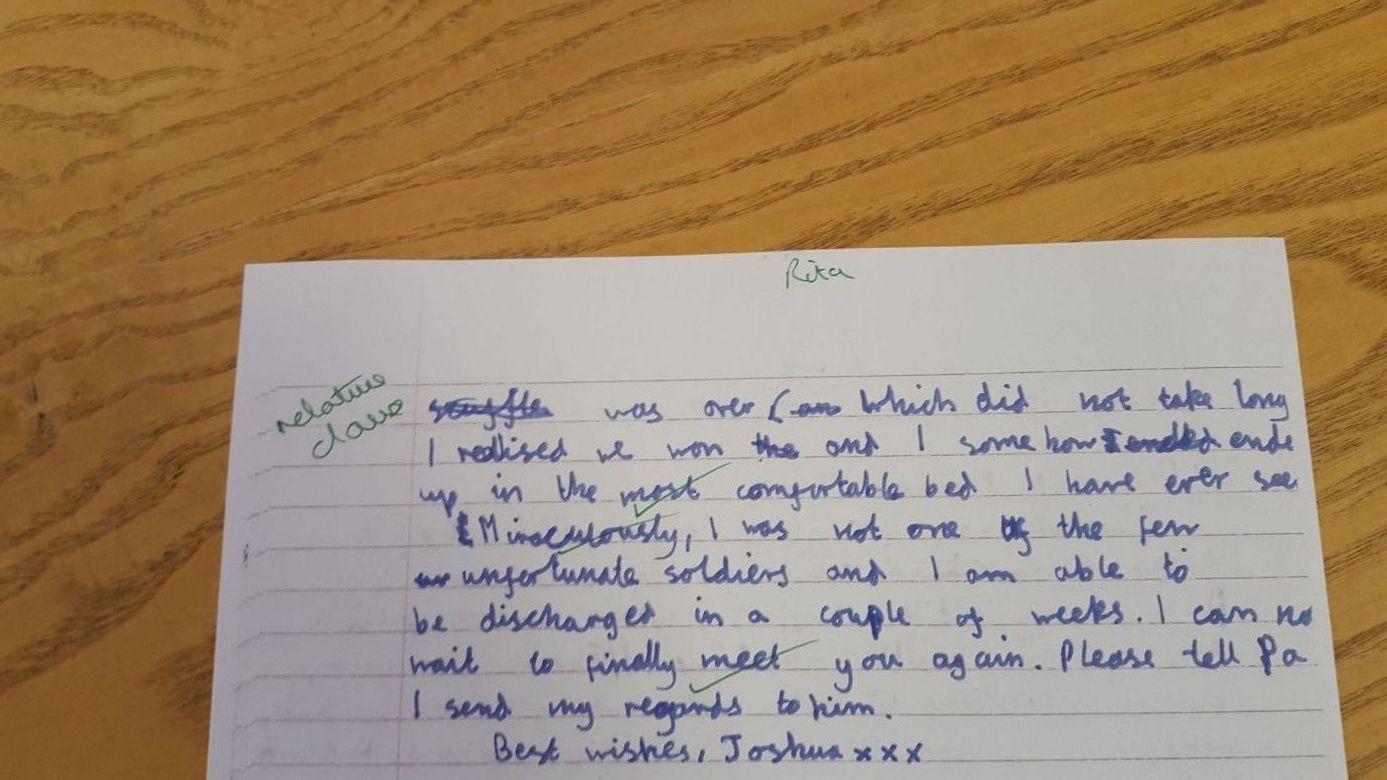 Rita
relative
clause
scuffle was over (an Which did not take long
I realised we won the and I some how ended ende
up in the most comfortable bed I have ever see
Miraculously, I was not one of the few
un unfortunate soldiers and I am able to
be discharged in a couple of weeks. I can no
wait to finally meet you again. Please tell Pa
I send my regards to him.
Best wishes, Joshua x x x